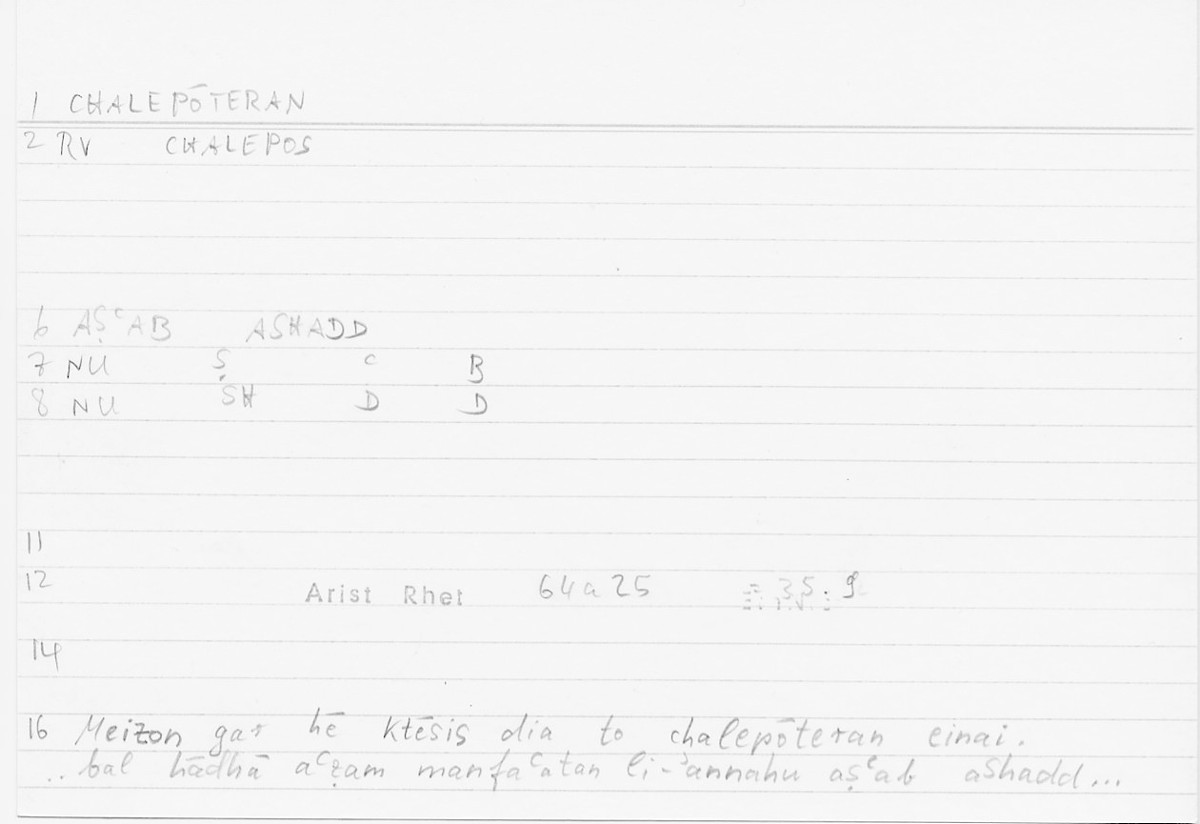 1 CHALEPŌTERAN
2 RV CHALEPOS
6 AṢʿAB ASHADD
7 NU Ṣ ʿ B
8 NU SH D D
11
12 Arist Rhet 64a25 = 35.9
14
16 Meizon gar hē ktēsis dia to chalepōteran einai.
.. bal hādhā aʿẓam manfaʿatan li-ʾannahu aṣʿab ashadd...